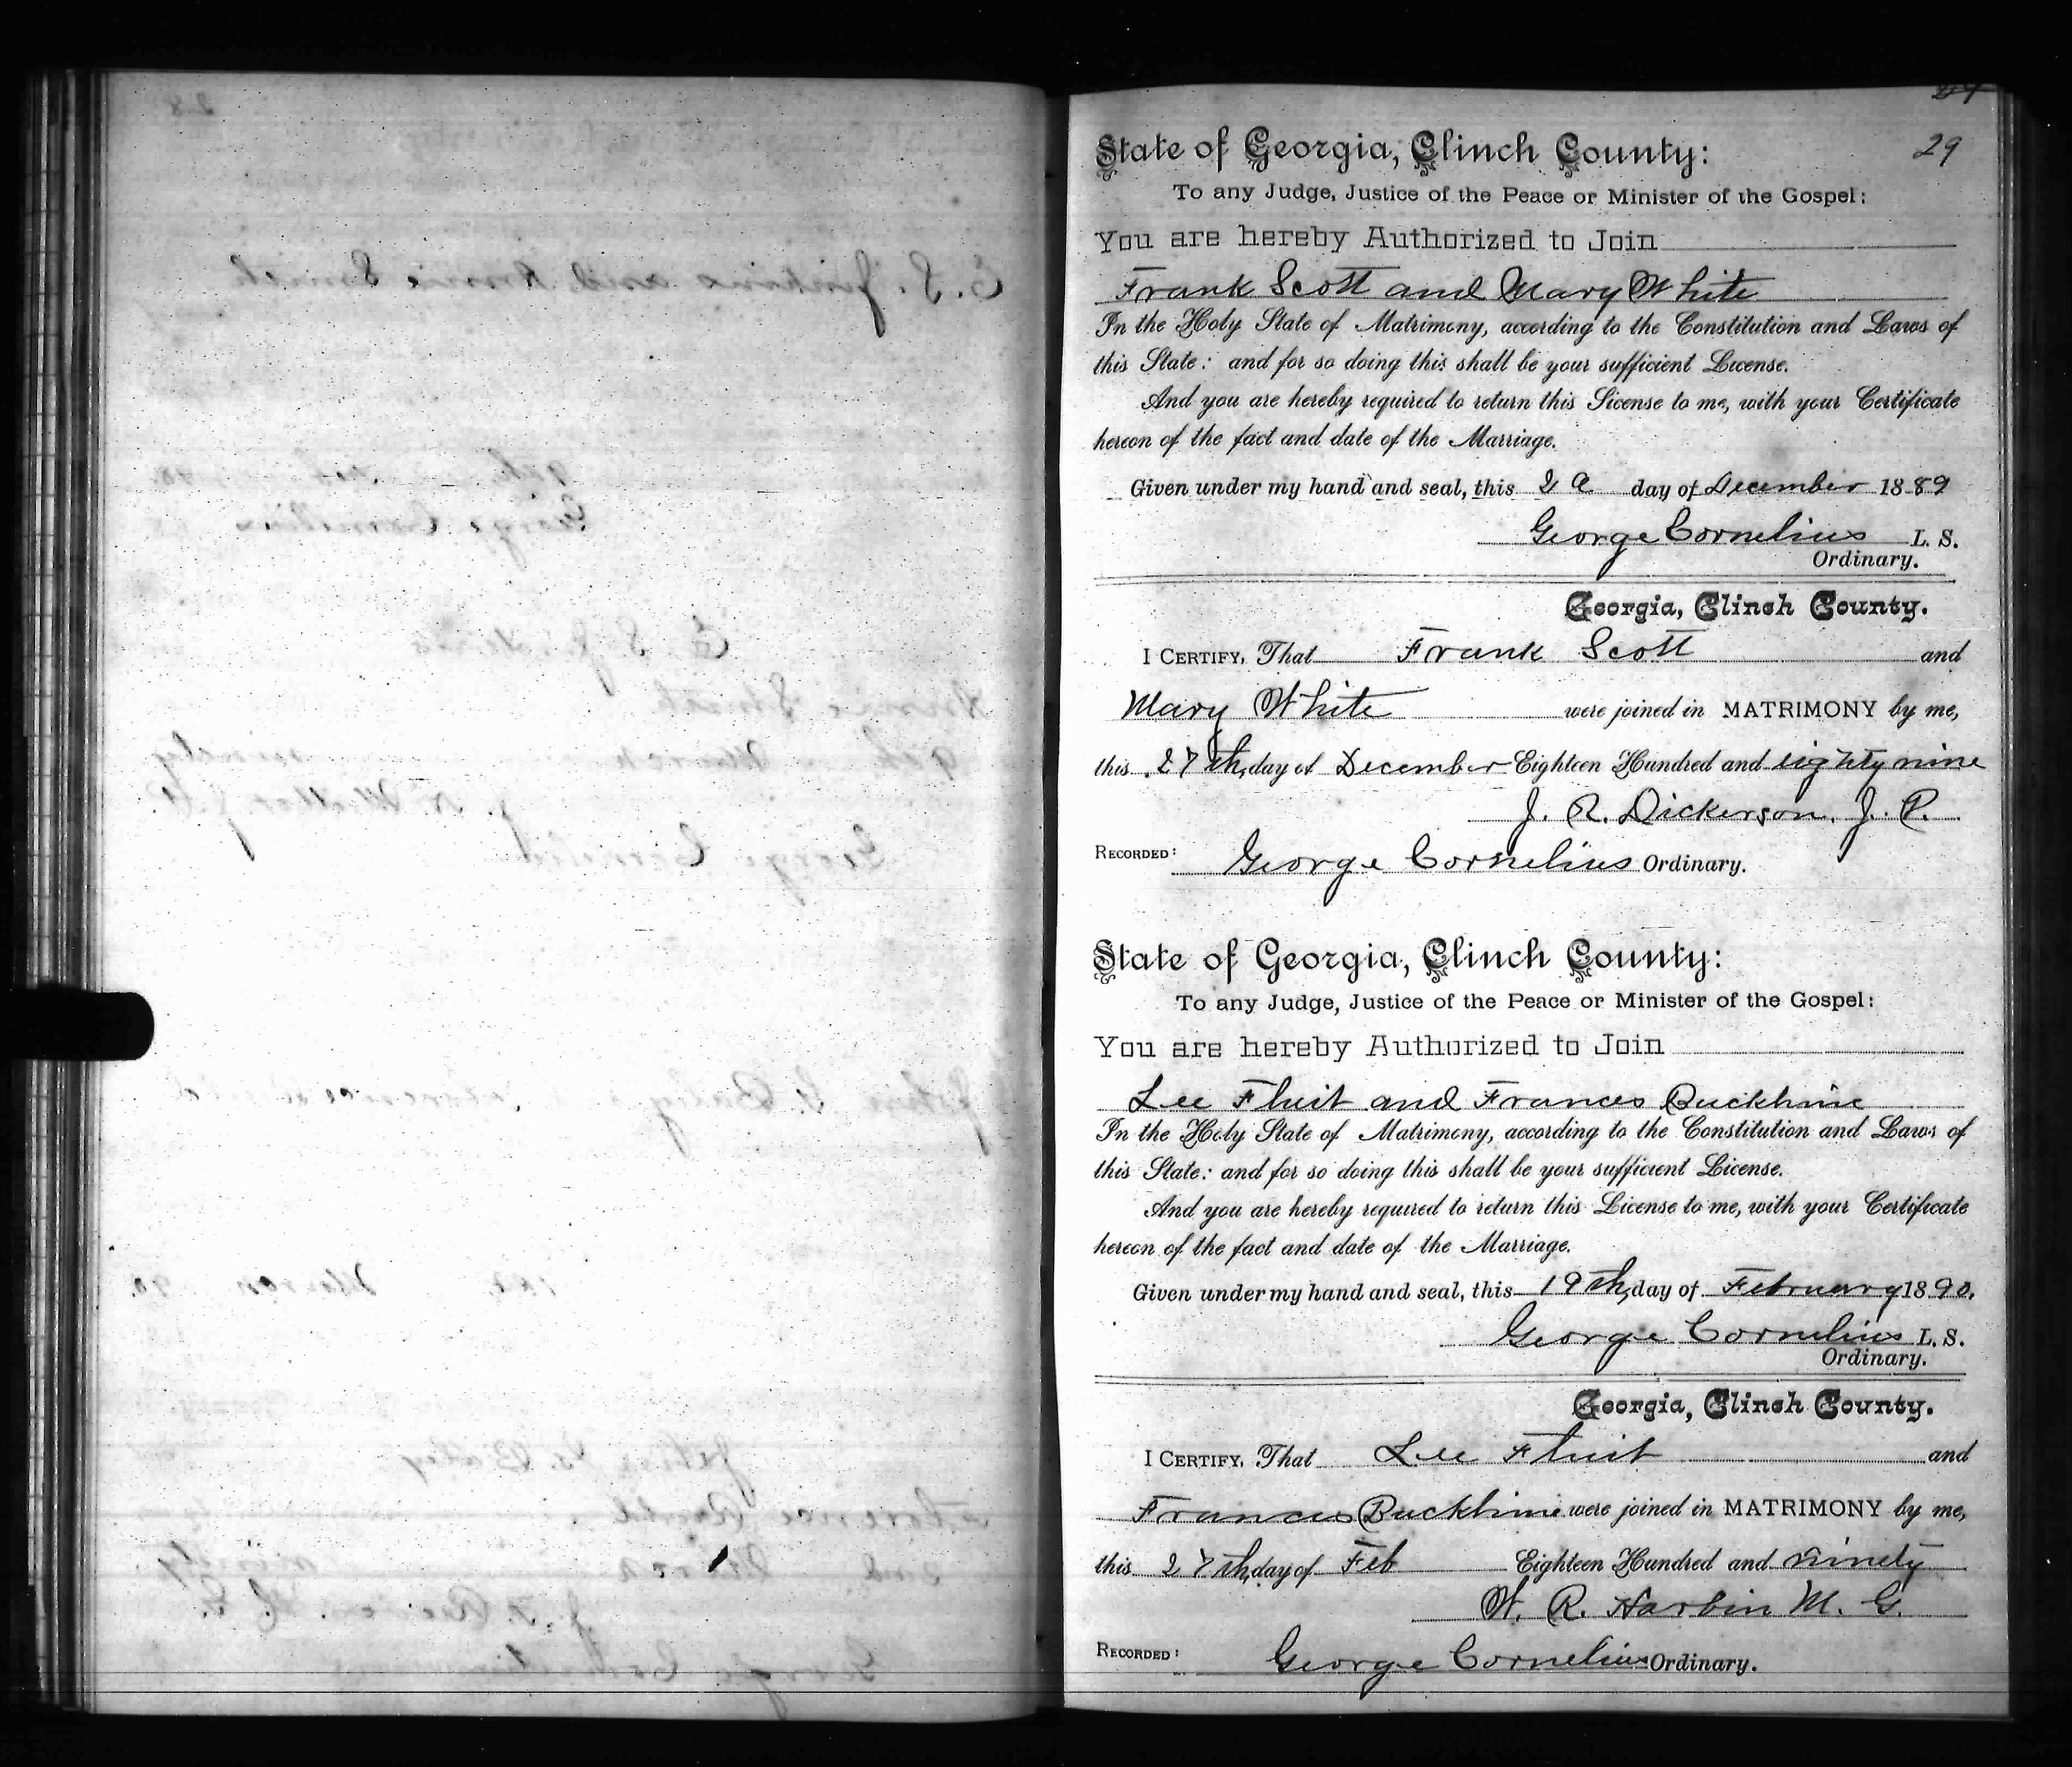 29
State of Georgia, Clinch County:
To any Judge, Justice of the Peace or Minister of the Gospel:
You are hereby Authorized to Join
Frank Scott and Mary White
In the Holy State of Matrimony, according to the Constitution and Laws of
this State: and for so doing this shall be your sufficient License.
And you are hereby required to return this License to me, with your Certificate
hereon of the fact and date of the Marriage.
Given under my hand and seal, this day of December 1889
George Cornelius L. S.
Ordinary.
Georgia, Clinch County.
I CERTIFY, That Frank Scott and
Mary White were joined in MATRIMONY by me,
this 27th, day of December Eighteen Hundred and eighty nine
J. R. Dickerson. J. P.
RECORDED: George Cornelius Ordinary.
State of Georgia, Clinch County:
To any Judge, Justice of the Peace or Minister of the Gospel:
You are hereby Authorized to Join
Lee Fluit and Frances Buckhine
In the Holy State of Matrimony, according to the Constitution and Laws of
this State: and for so doing this shall be your sufficient License.
And you are hereby required to return this License to me, with your Certificate
hereon of the fact and date of the Marriage.
Given under my hand and seal, this 19th, day of February 1890.
George Cornelius L. S.
Ordinary.
Georgia, Clinch County.
I CERTIFY, That Lee Fluit and
Frances Buckhine were joined in MATRIMONY by me,
this 27th, day of Feb Eighteen Hundred and ninety
W. R. Harbin M. G.
RECORDED: George Cornelius Ordinary.